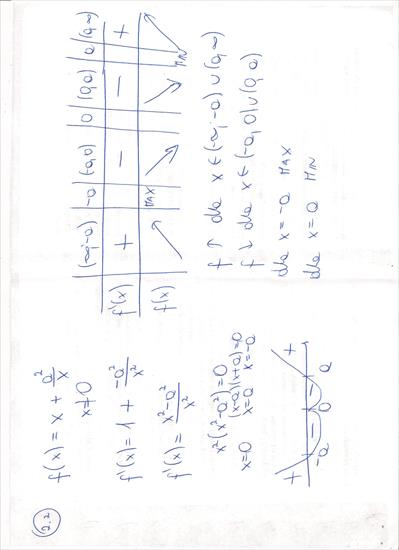 2.2
f(x) = x + a²/x
x≠0
f'(x) = 1 + -a²/x²
f'(x) = x²-a²/x²
x²(x²-a²)=0
(x-a)(x+a)=0
x=0 x=a x=-a
+ - - +
-a 0 a
(-∞;-a) -a (-a,0) 0 (0,a) a (a,∞)
f'(x) + - - +
f(x) ↗ MAX ↘ ↘ MIN ↗
f ↑ dla x ∈ (-∞;-a) ∪ (a,∞)
f ↓ dla x ∈ (-a,0) ∪ (0,a)
dla x = -a MAX
dla x = a MIN